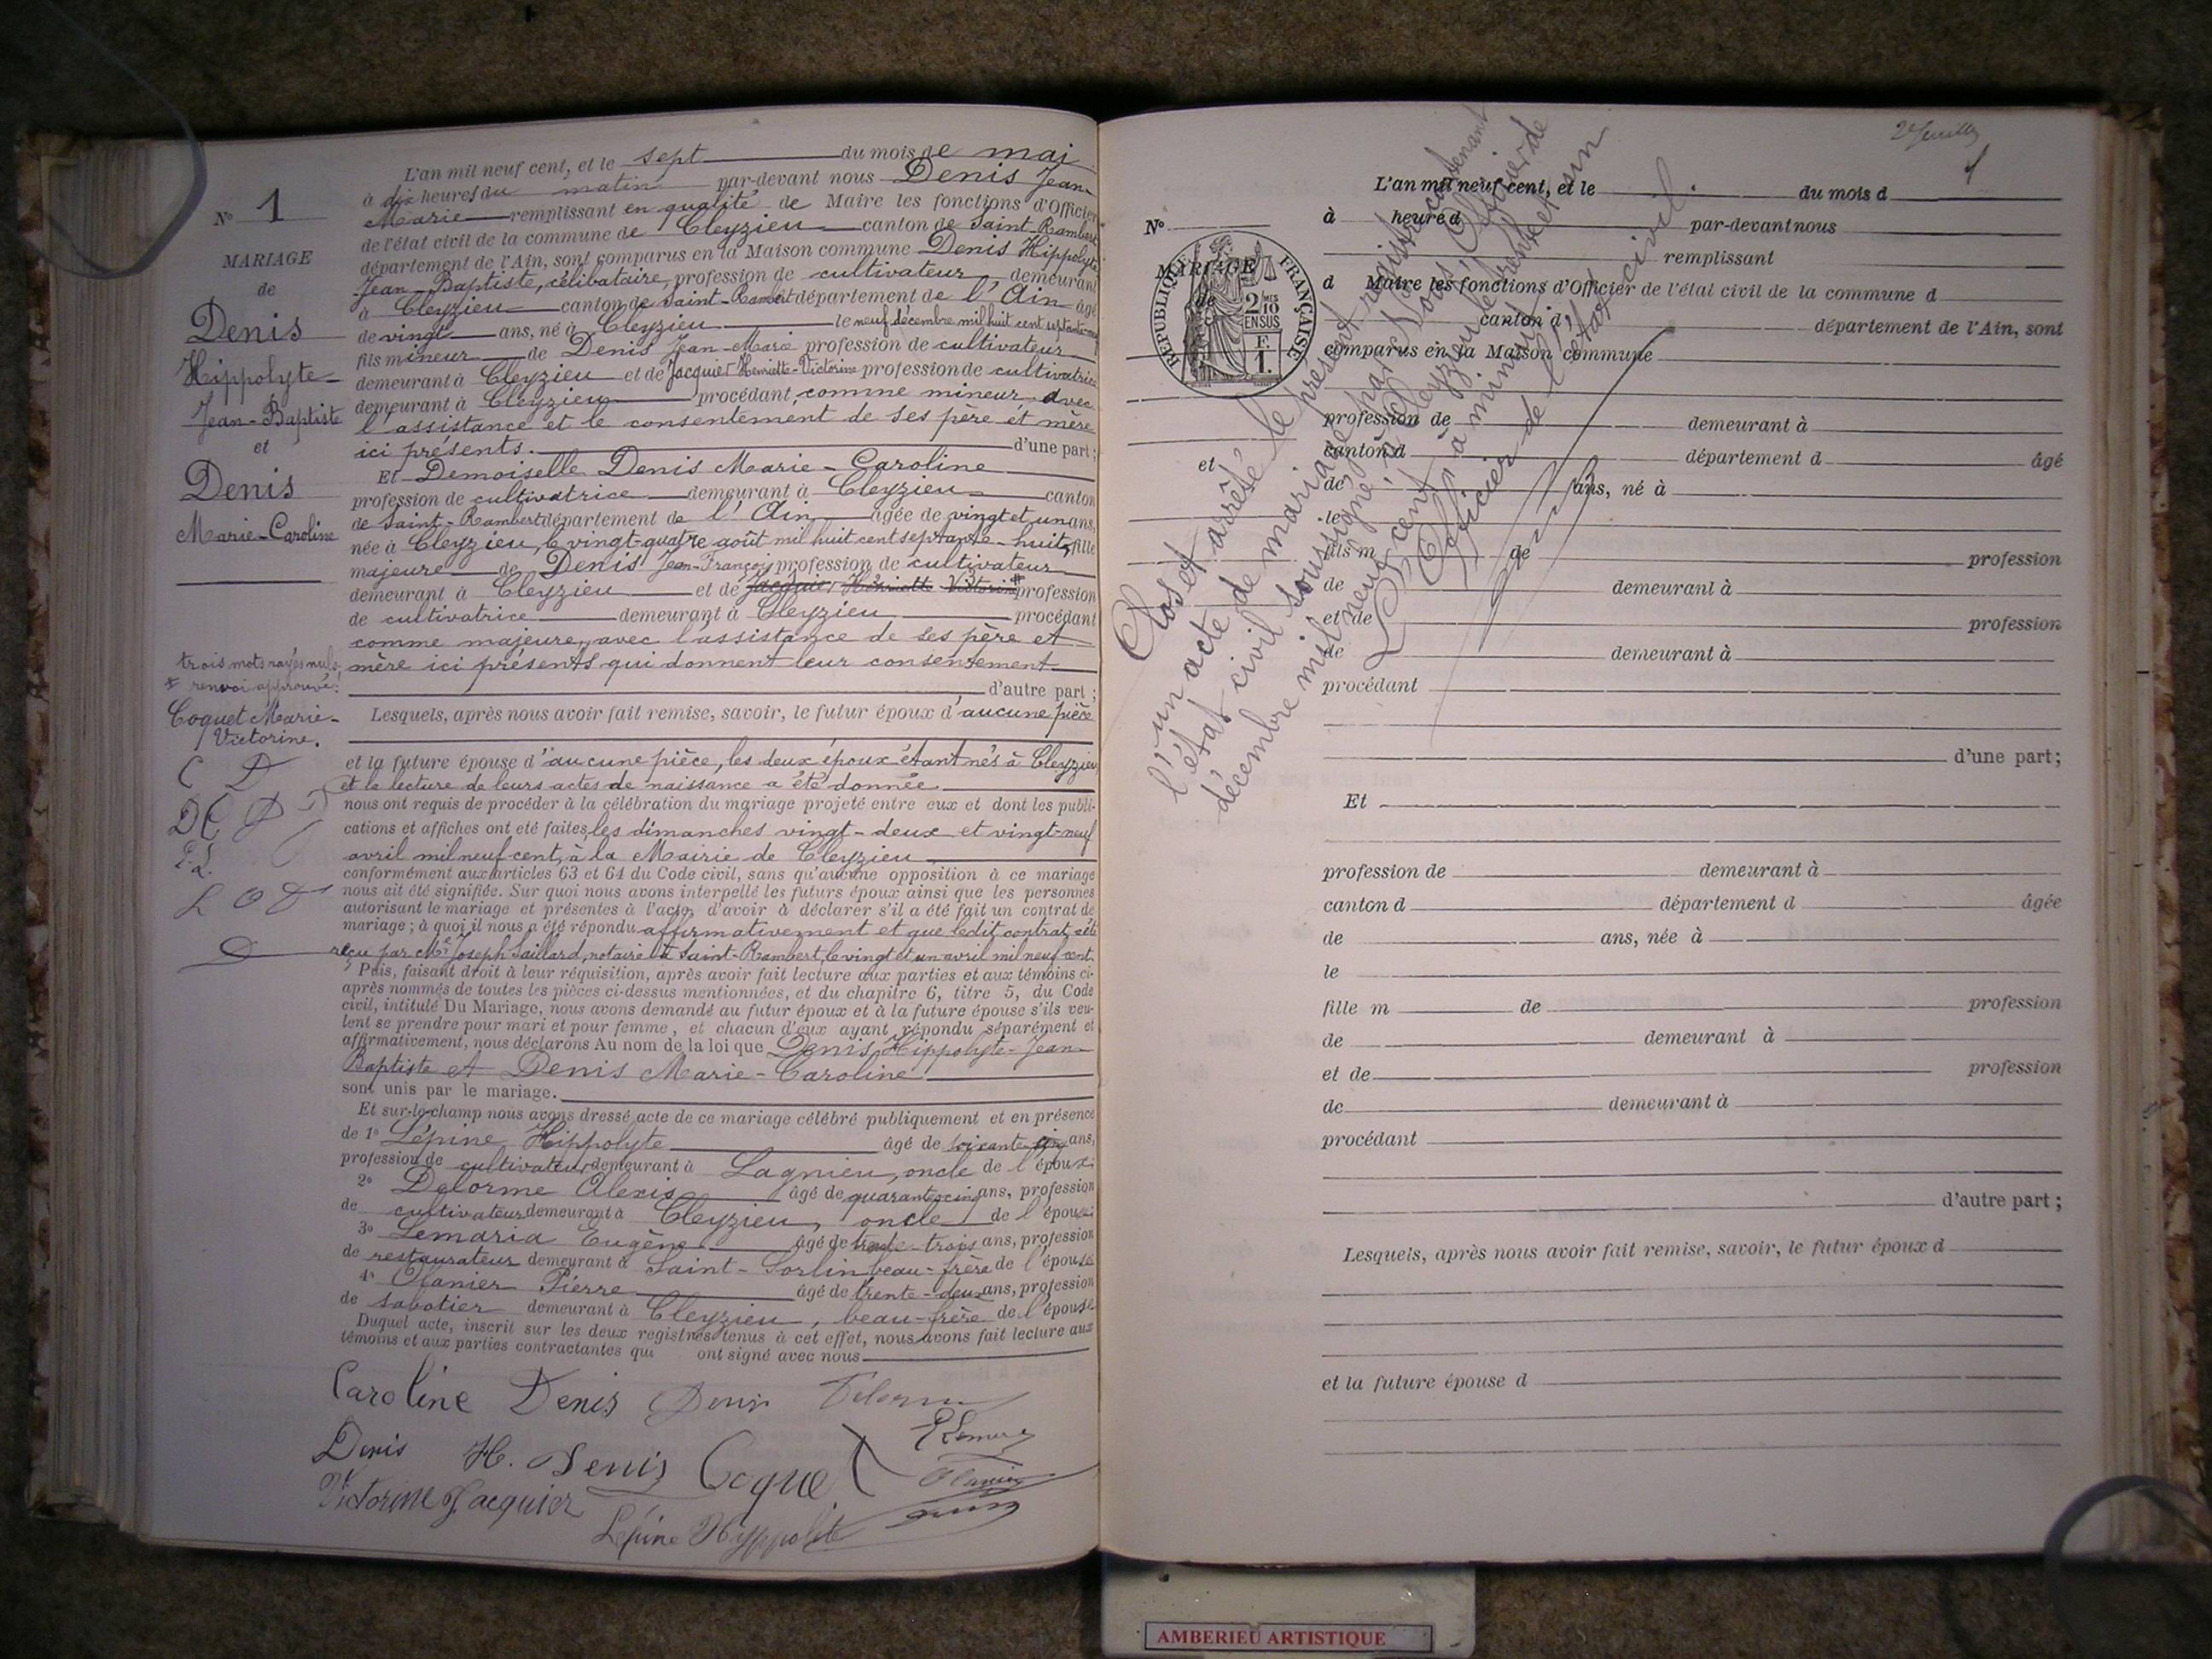 L'an mil neuf cent, et le sept du mois de mai
à dix heures du matin par-devant nous Denis Jean-
Marie remplissant en qualité de Maire les fonctions d'Officier
de l'état civil de la commune de Cleyzieu canton de Saint-Rambert
département de l'Ain, sont comparus en la Maison commune Denis Hippolyte
Jean-Baptiste, célibataire, profession de cultivateur demeurant
à Cleyzieu canton de Saint-Rambert département de l'Ain âgé
de vingt ans, né à Cleyzieu le neuf décembre mil huit cent septante-neuf
fils mineur de Denis Jean-Marie profession de cultivateur
demeurant à Cleyzieu et de Jacquier Henriette-Victorine profession de cultivatrice
demeurant à Cleyzieu procédant, comme mineur avec
l'assistance et le consentement de ses père et mère
ici présents. d'une part;
Et Demoiselle Denis Marie-Caroline
profession de cultivatrice demeurant à Cleyzieu canton
de Saint-Rambert département de l'Ain âgée de vingt et un ans,
née à Cleyzieu, le vingt-quatre août mil huit cent septante-huit, fille
majeure de Denis Jean-François profession de cultivateur
demeurant à Cleyzieu et de Jacquier Henriette Victorine # profession
de cultivatrice demeurant à Cleyzieu procédant
comme majeure, avec l'assistance de ses père et
mère ici présents qui donnent leur consentement
d'autre part;
Lesquels, après nous avoir fait remise, savoir, le futur époux d'aucune pièce
et la future épouse d'aucune pièce, les deux époux étant nés à Cleyzieu
et le lecture de leurs actes de naissance a été donnée
nous ont requis de procéder à la célébration du mariage projeté entre eux et dont les publi-
cations et affiches ont été faites, les dimanches vingt-deux et vingt-neuf
avril mil neuf cent, à la Mairie de Cleyzieu
conformément aux articles 63 et 64 du Code civil, sans qu'aucune opposition à ce mariage
nous ait été signifiée. Sur quoi nous avons interpellé les futurs époux ainsi que les personnes
autorisant le mariage et présentes à l'acte, d'avoir à déclarer s'il a été fait un contrat de
mariage; à quoi il nous a été répondu affirmativement et que ledit contrat a été
reçu par Me Joseph Saillard, notaire à Saint-Rambert, le vingt et un avril mil neuf cent.
Puis, faisant droit à leur réquisition, après avoir fait lecture aux parties et aux témoins ci-
après nommés de toutes les pièces ci-dessus mentionnées, et du chapitre 6, titre 5, du Code
civil, intitulé Du Mariage, nous avons demandé au futur époux et à la future épouse s'ils veu-
lent se prendre pour mari et pour femme, et chacun d'eux ayant répondu séparément et
affirmativement, nous déclarons Au nom de la loi que Denis Hippolyte-Jean-
Baptiste et Denis Marie-Caroline
sont unis par le mariage.
Et sur-le-champ nous avons dressé acte de ce mariage célébré publiquement et en présence
de 1° Lépine Hippolyte âgé de soixante-cinq ans,
profession de cultivateur demeurant à Lagnieu, oncle de l'époux;
2° Delorme Alexis âgé de quarante-cinq ans, profession
de cultivateur demeurant à Cleyzieu, oncle de l'époux;
3° Lemaria Eugène âgé de trente-trois ans, profession
de restaurateur demeurant à Saint-Sorlin beau-frère de l'épouse
4° Olanier Pierre âgé de trente-deux ans, profession
de sabotier demeurant à Cleyzieu, beau-frère de l'épouse
Duquel acte, inscrit sur les deux registres tenus à cet effet, nous avons fait lecture aux
témoins et aux parties contractantes qui ont signé avec nous
Caroline Denis Denis Delorme
Denis H. Denis Coque
Victorine Jacquier
Lépine Hyppolite
N° 1
MARIAGE
de
Denis
Hippolyte-
Jean-Baptiste
et
Denis
Marie-Caroline
trois mots rayés nuls.
# renvoi approuvé:
Coquet Marie-
Victorine.
C D
L'an mil neuf cent, et le du mois d
à heure d par-devant nous
remplissant
d Maire les fonctions d'Officier de l'état civil de la commune d
canton d département de l'Ain, sont
comparus en la Maison commune
profession de demeurant à
canton d département d âgé
de ans, né à
le
fils m de profession
de demeurant à
et de profession
de demeurant à
procédant
d'une part;
Et
profession de demeurant à
canton d département d âgée
de ans, née à
le
fille m de profession
de demeurant à
et de profession
de demeurant à
procédant
d'autre part;
Lesquels, après nous avoir fait remise, savoir, le futur époux d
et la future épouse d
N°
MARIAGE
de
et
RÉPUBLIQUE FRANÇAISE
2/10 MES
EN SUS
F.
1.
Clos et arrêté le présent registre contenant
un acte de mariage par Nous, Officier de
l'état civil soussigné, à Cleyzieu le trente et un
décembre mil neuf cent à minuit
L'Officier de l'état civil
AMBERIEU ARTISTIQUE